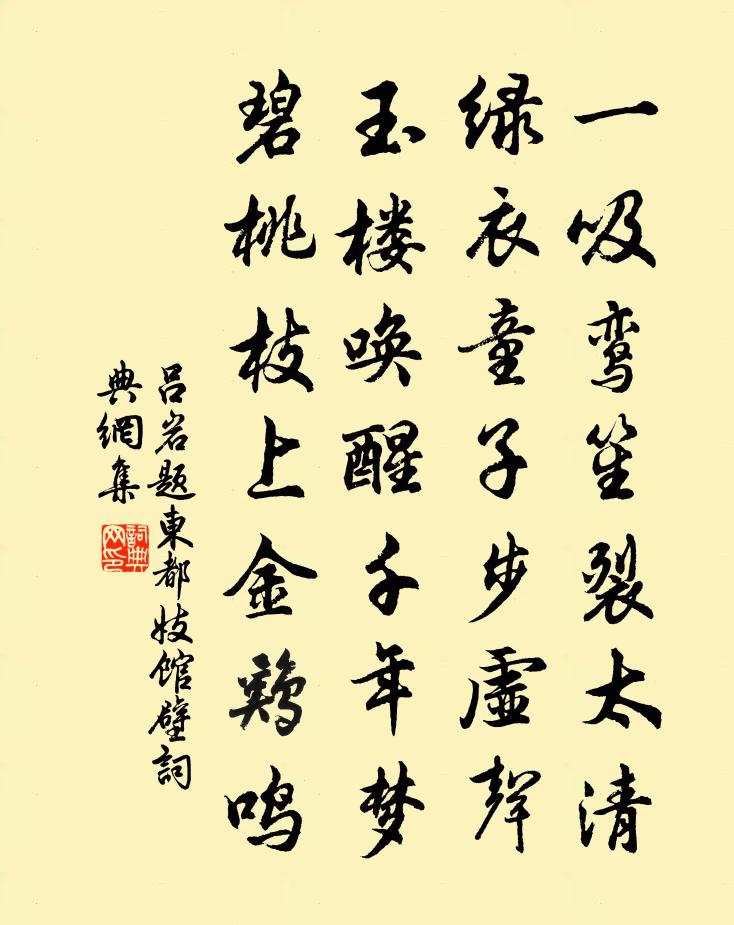 一吸鸾笙裂太清
绿衣童子步虚聲
玉楼唤醒千年梦
碧桃枝上金鷄鸣
吕岩题東都妓馆壁詞
典網集
詞典
网印